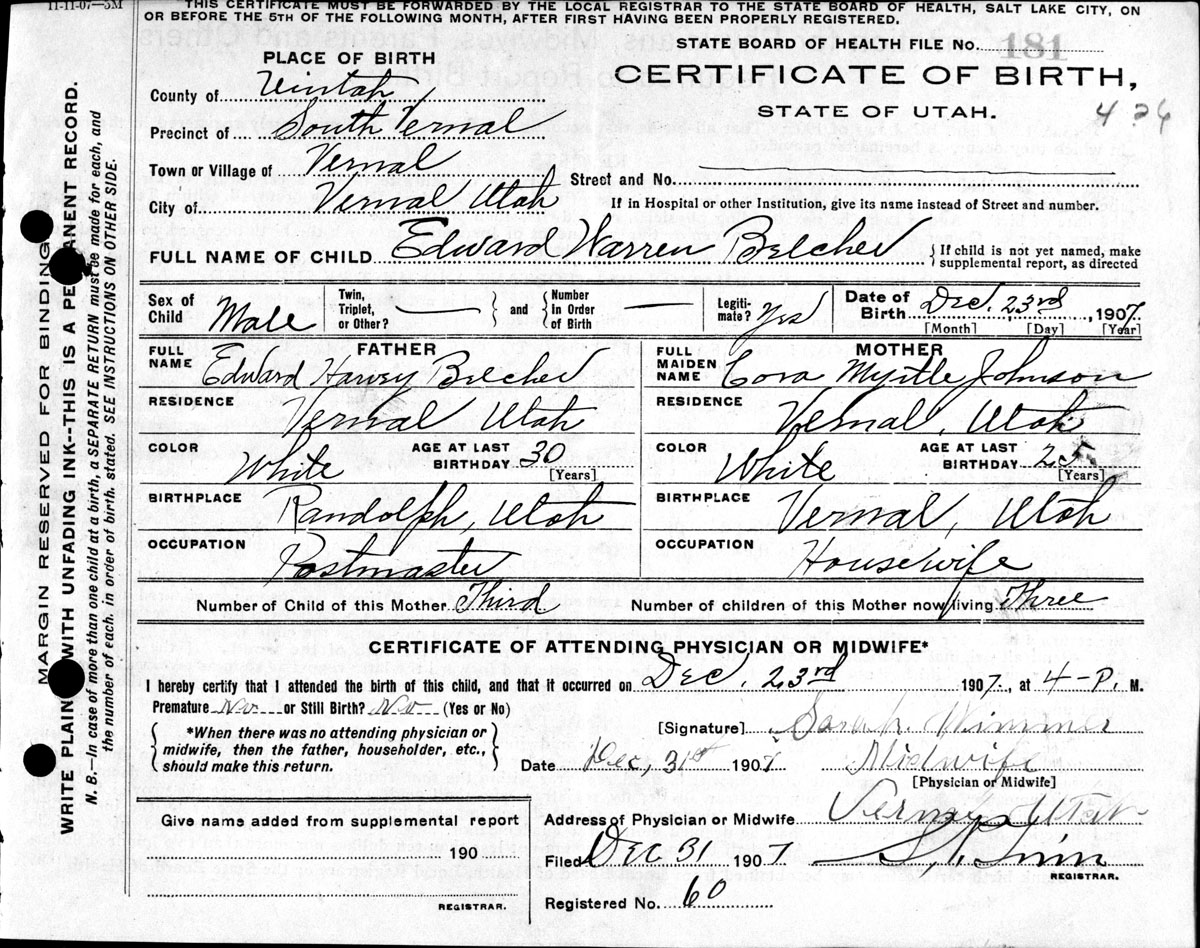 11-11-07—3M
THIS CERTIFICATE MUST BE FORWARDED BY THE LOCAL REGISTRAR TO THE STATE BOARD OF HEALTH, SALT LAKE CITY, ON
OR BEFORE THE 5TH OF THE FOLLOWING MONTH, AFTER FIRST HAVING BEEN PROPERLY REGISTERED.
STATE BOARD OF HEALTH FILE NO. 181
CERTIFICATE OF BIRTH,
STATE OF UTAH.
PLACE OF BIRTH
County of Uintah
Precinct of South Vernal
Town or Village of Vernal
Street and No.
City of Vernal Utah
If in Hospital or other Institution, give its name instead of Street and number.
FULL NAME OF CHILD Edward Warren Belcher
{If child is not yet named, make
supplemental report, as directed
Sex of Child Male
Twin, Triplet, or Other? —
} and {
Number In Order of Birth —
Legiti-mate? Yes
Date of Birth Dec. 23rd, 1907
[Month] [Day] [Year]
FATHER
FULL NAME Edward Harvey Belcher
RESIDENCE Vernal Utah
COLOR White
AGE AT LAST BIRTHDAY 30
[Years]
BIRTHPLACE Randolph, Utah
OCCUPATION Postmaster
MOTHER
FULL MAIDEN NAME Cora Myrtle Johnson
RESIDENCE Vernal, Utah
COLOR White
AGE AT LAST BIRTHDAY 25
[Years]
BIRTHPLACE Vernal, Utah
OCCUPATION Housewife
Number of Child of this Mother Third
Number of children of this Mother now living Three
CERTIFICATE OF ATTENDING PHYSICIAN OR MIDWIFE*
I hereby certify that I attended the birth of this child, and that it occurred on Dec. 23rd 1907, at 4-P. M.
Premature No or Still Birth? No (Yes or No)
{*When there was no attending physician or
midwife, then the father, householder, etc.,
should make this return.}
[Signature] Sarah Wimmer
Date Dec, 31st 1907 Midwife
[Physician or Midwife]
Address of Physician or Midwife Vernal Utah
Filed Dec 31 1907
REGISTRAR.
Registered No. 60
Give name added from supplemental report
190
REGISTRAR.
MARGIN RESERVED FOR BINDING
WRITE PLAINLY WITH UNFADING INK--THIS IS A PERMANENT RECORD.
N. B.—In case of more than one child at a birth, a SEPARATE RETURN must be made for each, and
the number of each, in order of birth, stated. SEE INSTRUCTIONS ON OTHER SIDE.